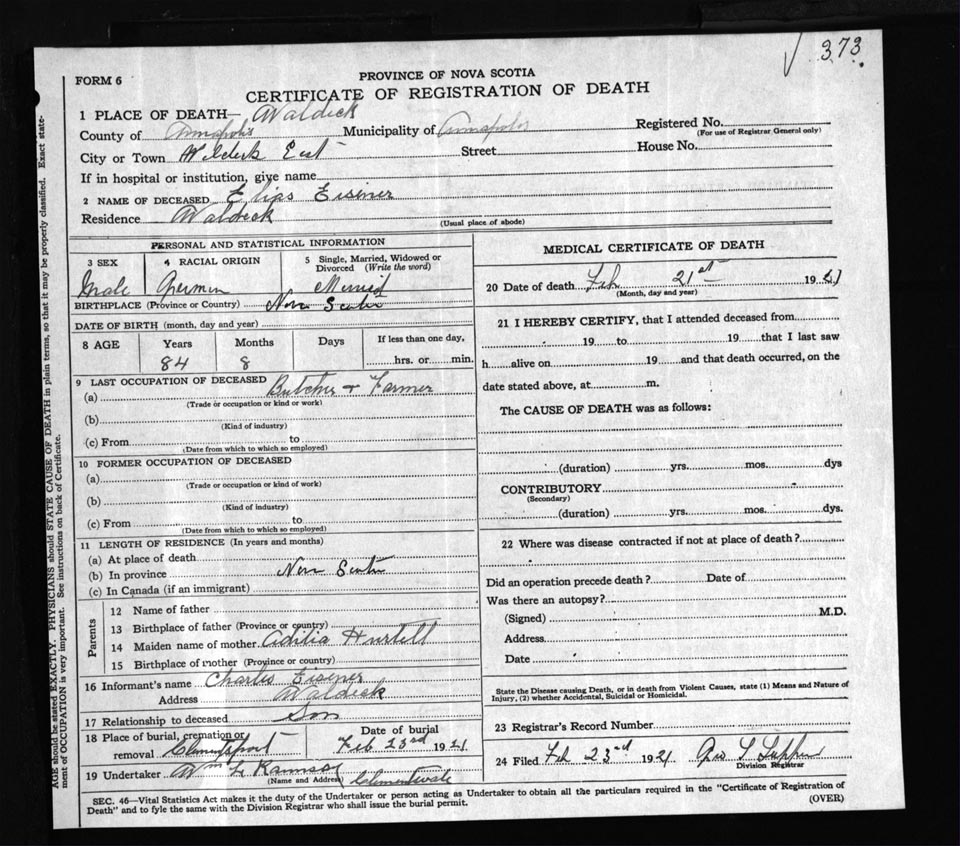 √ 373.
FORM 6
PROVINCE OF NOVA SCOTIA
CERTIFICATE OF REGISTRATION OF DEATH
1 PLACE OF DEATH— Waldeck
County of Annapolis Municipality of Annapolis Registered No.
(For use of Registrar General only)
City or Town Waldeck East Street House No.
If in hospital or institution, give name
2 NAME OF DECEASED Eisner
Residence Waldeck
(Usual place of abode)
PERSONAL AND STATISTICAL INFORMATION
3 SEX 4 RACIAL ORIGIN 5 Single, Married, Widowed or Divorced (Write the word)
Male German Married
BIRTHPLACE (Province or Country) Nova Scotia
DATE OF BIRTH (month, day and year)
8 AGE Years Months Days If less than one day,
84 8 hrs. or min.
9 LAST OCCUPATION OF DECEASED
(a) Butcher + Farmer
(Trade or occupation or kind or work)
(b)
(Kind of industry)
(c) From to
(Date from which to which so employed)
10 FORMER OCCUPATION OF DECEASED
(a)
(Trade or occupation or kind of work)
(b)
(Kind of industry)
(c) From to
(Date from which to which so employed)
11 LENGTH OF RESIDENCE (In years and months)
(a) At place of death
(b) In province Nova Scotia
(c) In Canada (if an immigrant)
Parents
12 Name of father
13 Birthplace of father (Province or country)
14 Maiden name of mother
15 Birthplace of mother (Province or country)
16 Informant's name Charles Eisner
Address Waldeck
17 Relationship to deceased Son
18 Place of burial, cremation or removal Clementsport
Date of burial
Feb 23rd 1921
19 Undertaker Wm L Ramsay Clementsvale
(Name and Address)
MEDICAL CERTIFICATE OF DEATH
20 Date of death Feb 21st 1921
(Month, day and year)
21 I HEREBY CERTIFY, that I attended deceased from
19 to 19 that I last saw
h alive on 19 and that death occurred, on the
date stated above, at m.
The CAUSE OF DEATH was as follows:
(duration) yrs. mos. dys
CONTRIBUTORY
(Secondary)
(duration) yrs. mos. dys.
22 Where was disease contracted if not at place of death?
Did an operation precede death? Date of
Was there an autopsy?
(Signed) M.D.
Address
Date
State the Disease causing Death, or in death from Violent Causes, state (1) Means and Nature of
Injury, (2) whether Accidental, Suicidal or Homicidal.
23 Registrar's Record Number
24 Filed Feb 23rd 1921
Division Registrar
SEC. 46—Vital Statistics Act makes it the duty of the Undertaker or person acting as Undertaker to obtain all the particulars required in the "Certificate of Registration of
Death" and to fyle the same with the Division Registrar who shall issue the burial permit. (OVER)
AGE should be stated EXACTLY. PHYSICIANS should STATE CAUSE OF DEATH in plain terms, so that it may be properly classified. Exact state-
ment of OCCUPATION is very important. See instructions on back of Certificate.